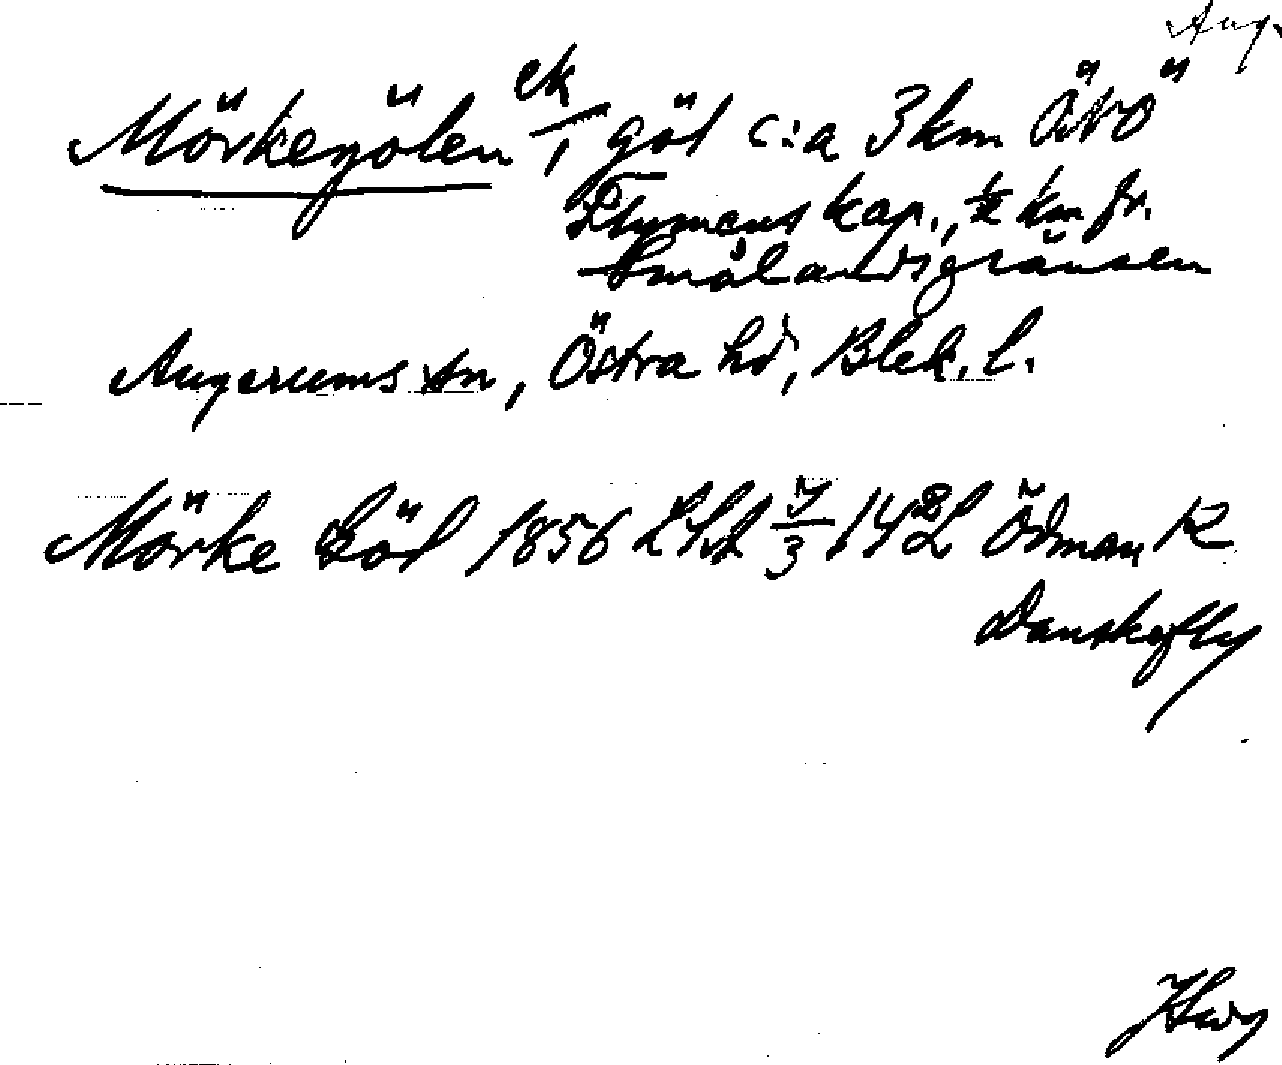 Aug.
Mörkegölen ek/1 göl c:a 3 km ÖNÖ
Flymens kap., ½ km fr.
Smålandsgränsen
Augerums sn, Östra hd, Blek. l.
Mörke Göl 1856 LSA 7/3 142 Ödman K
Danskefly